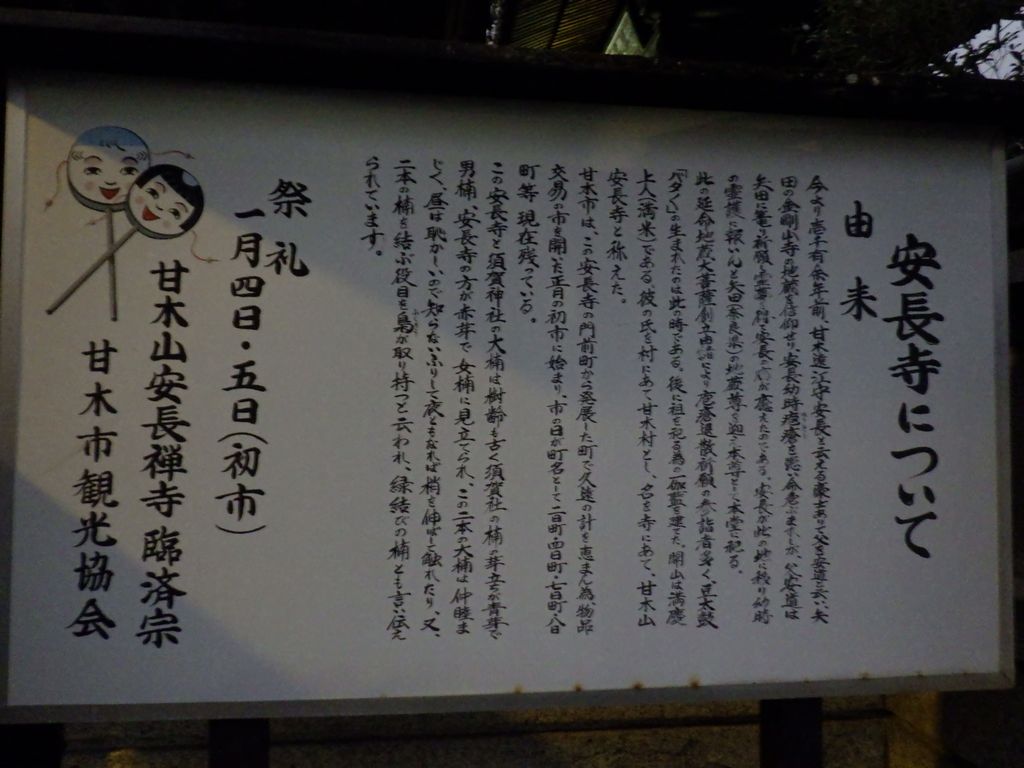 安長寺について
由来
今より壱千有余年前、甘木遠江守安長と云える豪士ありて父を安道と云い大
田の金剛山寺の地蔵を信仰せり、安長幼時疱瘡を患い命危ぶまれしが、父安道は
矢田に篭り祈願し霊験を得て安長の病が癒えたのである。安長が此の地に移り幼時
の霊護に報いんと矢田(奈良県)の地蔵尊を迎え本尊として本堂に祀る。
此の延命地蔵大菩薩創立由諸により疱瘡退散祈願の参詣者多く、豆太鼓
「バタバタ」の生まれたのは此の時である。後に祖を祀る為の伽藍を建てた、開山は満慶
上人(満米)である。彼の氏を村にあて甘木村とし、名を寺にあて、甘木山
安長寺と称えた。
甘木市は、この安長寺の門前町から発展した町で久遠の計を恵まん為物品
交易の市を開いた正月の初市に始まり、市の日が町名として二日町・四日町・七日町・八日
町等、現在残っている。
この安長寺と須賀神社の大楠は樹齢も古く須賀社の楠の芽立ちが青芽で
男楠、安長寺の方が赤芽で、女楠に見立てられ、この二本の大楠は仲睦ま
じく、昼は恥かしいので知らないふりして夜ともなれば梢を伸ばし触れたり、又、
二本の楠を結ぶ役目を鳥が取り持つと云われ、縁結びの楠とも言い伝え
られています。
祭礼
一月四日・五日(初市)
甘木山安長禅寺 臨済宗
甘木市観光協会